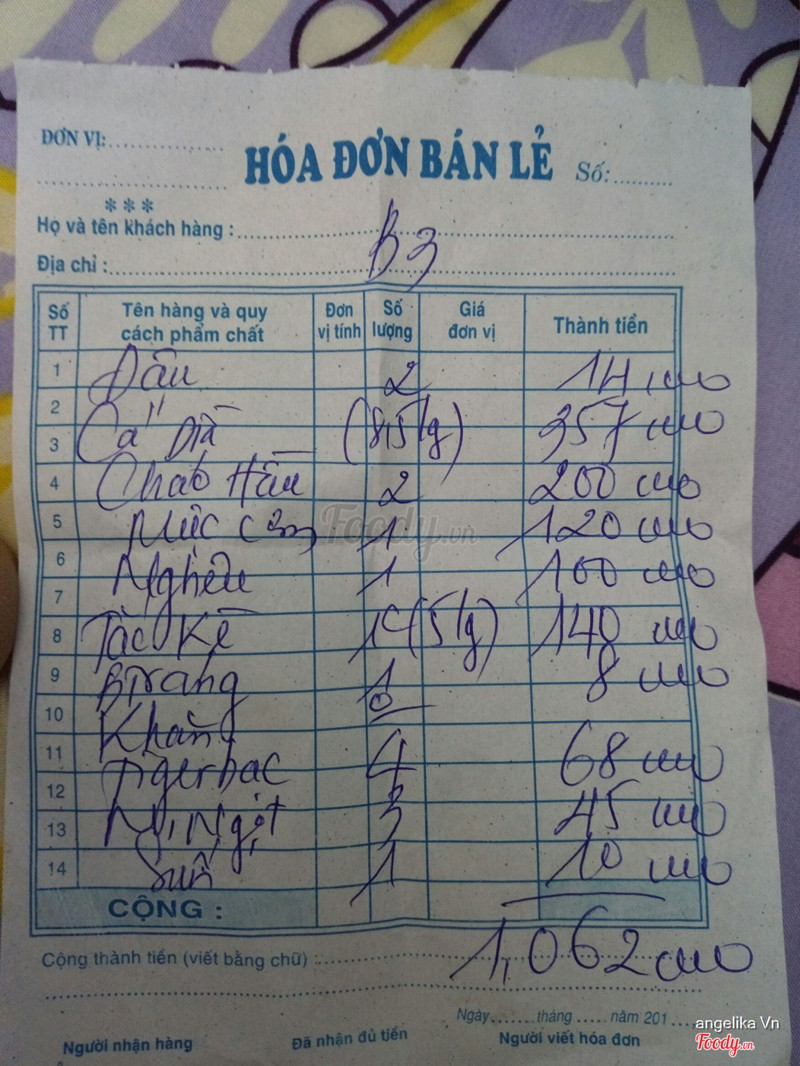 ĐƠN VỊ:
HÓA ĐƠN BÁN LẺ
Số:
***
Họ và tên khách hàng :
B3
Địa chỉ :
Số TT Tên hàng và quy cách phẩm chất Đơn vị tính Số lượng Giá đơn vị Thành tiền
1 Dầu 2 14
2
3 Cá Dìa (8,5/g) 357
4 Cháo Hàu 2 200
5 Mực 1 120
6
7 Nghêu 1 100
8 Tắc Kè 1 (5/g) 140
9 B Tráng 1 8
10 Khăn 0
11
12 Tiger bạc 4 68
13 N Ngọt 3 45
14 Suối 1 10
CỘNG :
Cộng thành tiền (viết bằng chữ) :
1,062
Ngày tháng năm 201
Người nhận hàng Đã nhận đủ tiền Người viết hóa đơn
Foody.vn
angelika Vn
Foody.vn